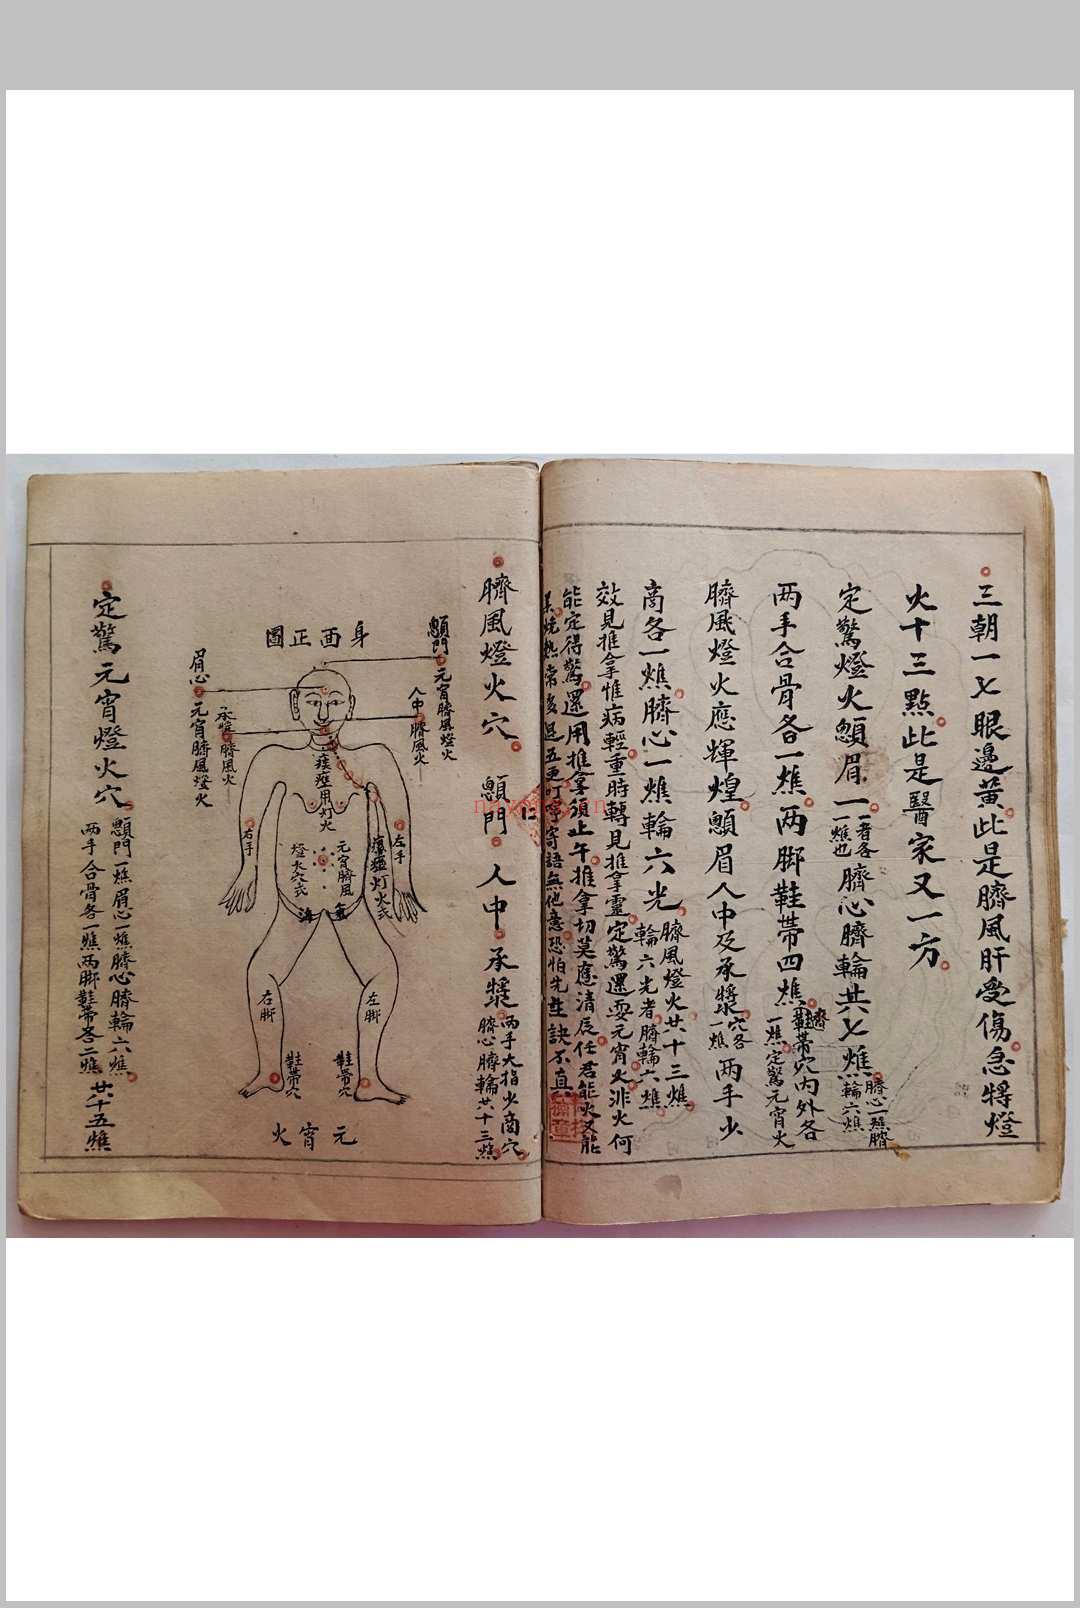 三朝一七眼邊黃此是臍風肝受傷急將燈
火十三點此是醫家又一方
定驚燈火顖眉一一者各一燋也臍心臍輪共七燋臍心一燋臍輪六燋
两手合骨各一燋两脚鞋帶四燋鞋帶穴内外各一燋定驚元宵火
臍風燈火應輝煌顖眉人中及承漿穴各一燋两手少
商各一燋臍心一燋輪六光臍風燈火共十三燋輪六光者臍輪六燋
效見推拿惟病輕重時轉見推拿靈定驚還要元宵火非火何
能定得驚還用推拿須止午推拿切莫應清辰任君能火又能
燒熱常多退五更叮嚀寄語無他意恐怕先生訣不真
臍風燈火穴
顖門
人中
承漿
两手大指少商穴
臍心臍輪共十三燋
身面正圖
顖門
元宵臍風燈火
人中
臍風火
眉心
元宵臍風燈火
承漿
臍風火
痰壅用灯火
左手
右手
元宵臍風
燈火穴式
灯火式
氣海
左脚
右脚
鞋帶穴
鞋帶穴
元宵火
定驚元宵燈火穴
顖門一燋眉心一燋臍心臍輪六燋
两手合骨各一燋两脚鞋帶各二燋
共十五燋